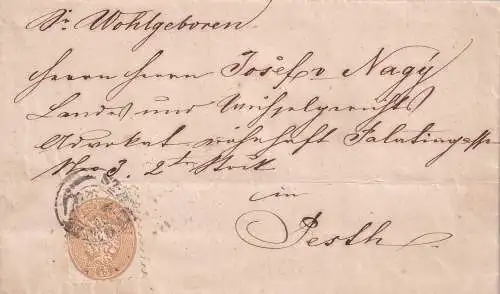 Sr Wohlgeboren
Herrn Herrn Josef v Nagy
Landes und Wechselgerichts
Advokat wohnhaft Palatingasse
Nro 3. 2ter Stock
in
Pesth